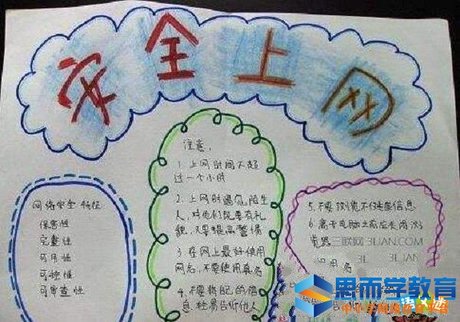 安全上网
网络安全特征
保密性
完整性
可用性
可控性
可审查性
注意:
1.上网时间不超
过一个小时
2.上网时遇见陌生
人,对他们既要有礼
貌,又要提高警惕
3.在网上最好使用
网名,不要使用真名
4.不要把自己的信
息,
5.不要浏览不健康信息
6.离开电脑之前应关闭浏
览器
三联网 3LIAN.COM
思而学教育